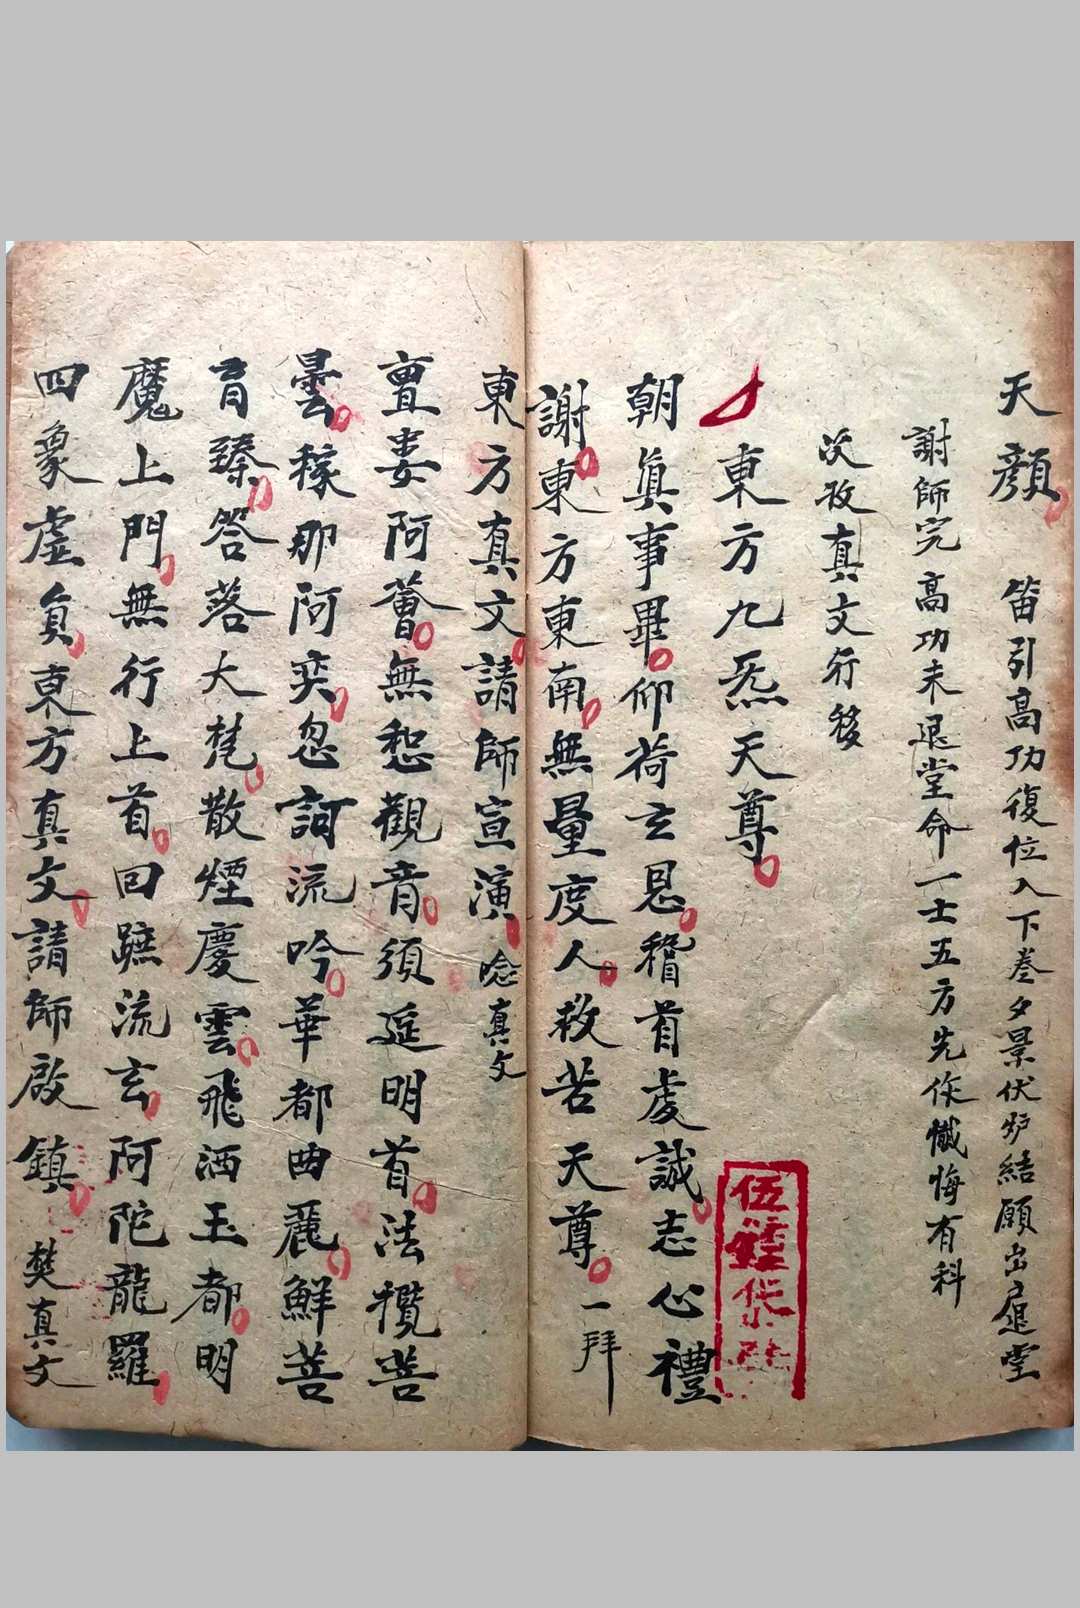 天顏 笛引高功復位入下卷夕景伏炉結願出退堂
謝師完高功未退堂命一士五方先作懺悔有科
次孜真文行移
東方九炁天尊
朝真事畢仰荷玄恩稽首虔誠志心禮
謝東方東南無量度人救苦天尊一拜
東方真文請師宣演 唸真文
亶婁阿薈無惒觀音須延明首法攬菩
曇稼那阿奕忽訶流吟華都曲麗鮮菩
育臻答落大梵散煙慶雲飛洒玉都明
魔上門無行上首回蹠流玄阿陀龍羅
四象虛負東方真文請師啟鎮 焚真文
伍